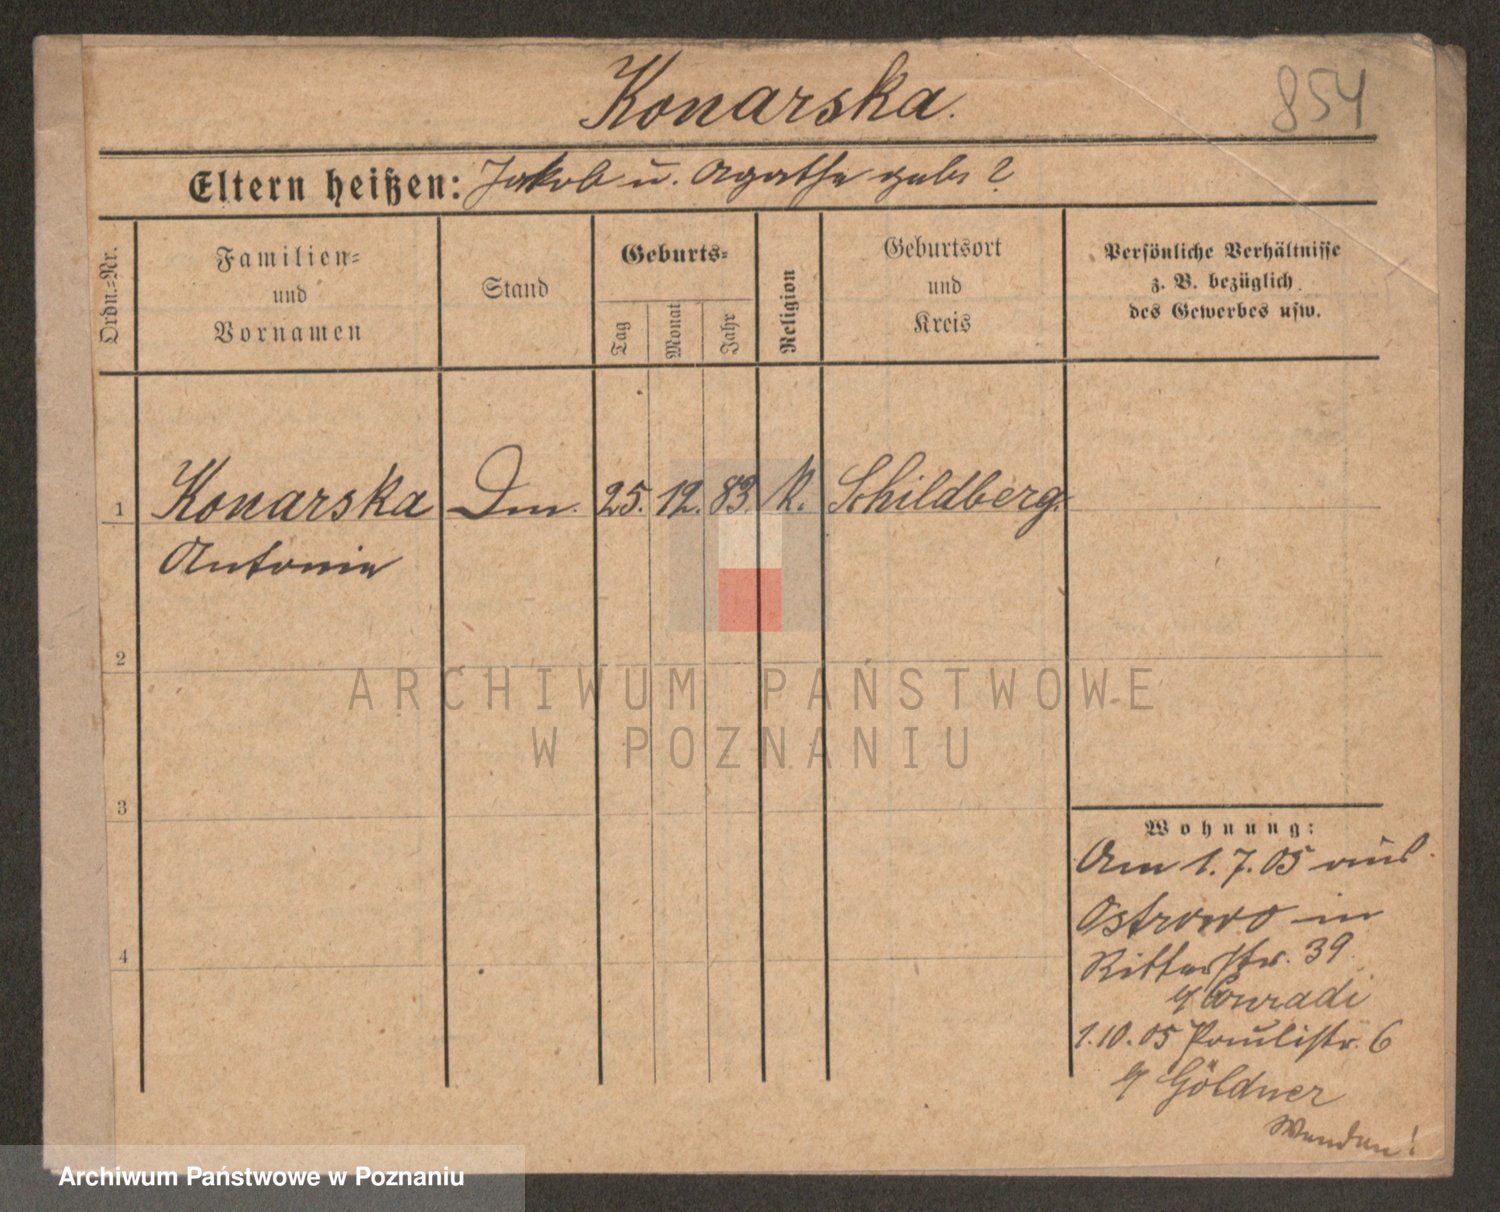 Konarska.
854
Eltern heißen: Jakob u. Agathe geb. ?
Ordn.=Nr.
Familien=
und
Vornamen
Stand
Geburts=
Tag
Monat
Jahr
Religion
Geburtsort
und
Kreis
Persönliche Verhältnisse
z. B. bezüglich
des Gewerbes usw.
1 Konarska Dm. 25. 12. 83. K. Schildberg.
Antonie
2
3
4
Wohnung:
Am 1.7.05 aus
Ostrowo in
Ritterstr. 39
Conradi
1.10.05 Paulistr. 6
Göldner
Wenden!
ARCHIWUM PAŃSTWOWE
W POZNANIU
Archiwum Państwowe w Poznaniu